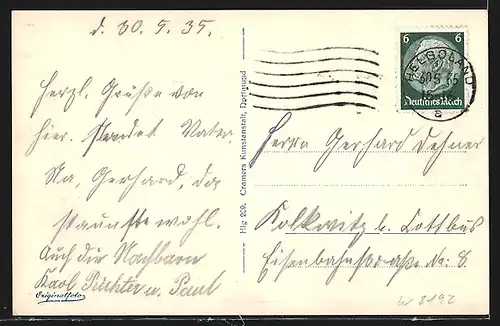 d. 30.5.35.
Herzl. Grüße von
hier. sendet Vater.
Na, Gerhard, da
staunste wohl.
Auch die Nachbarn
Karl Richter u. Paul
Originalfoto
Hlg 209. Cramers Kunstanstalt, Dortmund
6 6
Deutsches Reich
HELGOLAND
a
Herrn Gerhard Dehner
Kolkwitz b. Cottbus
Eisenbahnstraße Nr. 8
W 2192